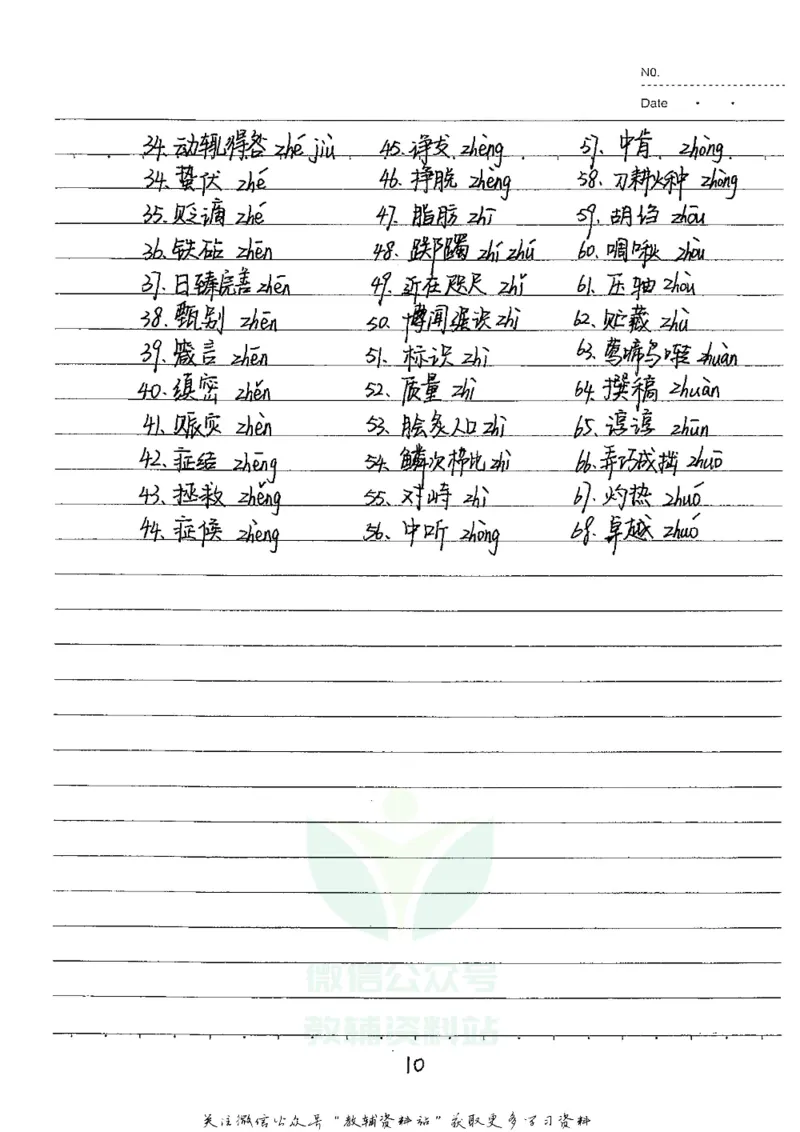 NO.
Date
34. 动辄得咎 zhé jiù
34. 蛰伏 zhé
35. 贬谪 zhé
36. 铁砧 zhēn
37. 日臻完善 zhēn
38. 甄别 zhēn
39. 箴言 zhēn
40. 缜密 zhěn
41. 赈灾 zhèn
42. 症结 zhēng
43. 拯救 zhěng
44. 症候 zhèng
45. 诤友 zhèng
46. 挣脱 zhèng
47. 脂肪 zhī
48. 踯躅 zhí zhú
49. 近在咫尺 zhǐ
50. 博闻强识 zhì
51. 标识 zhì
52. 质量 zhì
53. 脍炙人口 zhì
54. 鳞次栉比 zhì
55. 对峙 zhì
56. 中听 zhōng
57. 中肯 zhòng
58. 刀耕火种 zhòng
59. 胡诌 zhōu
60. 啁啾 zhōu
61. 压轴 zhòu
62. 贮藏 zhù
63. 莺啼鸟啭 zhuàn
64. 撰稿 zhuàn
65. 谆谆 zhūn
66. 弄巧成拙 zhuō
67. 灼热 zhuó
68. 卓越 zhuó
微信公众号
教辅资料站
10
关注微信公众号"教辅资料站"获取更多学习资料